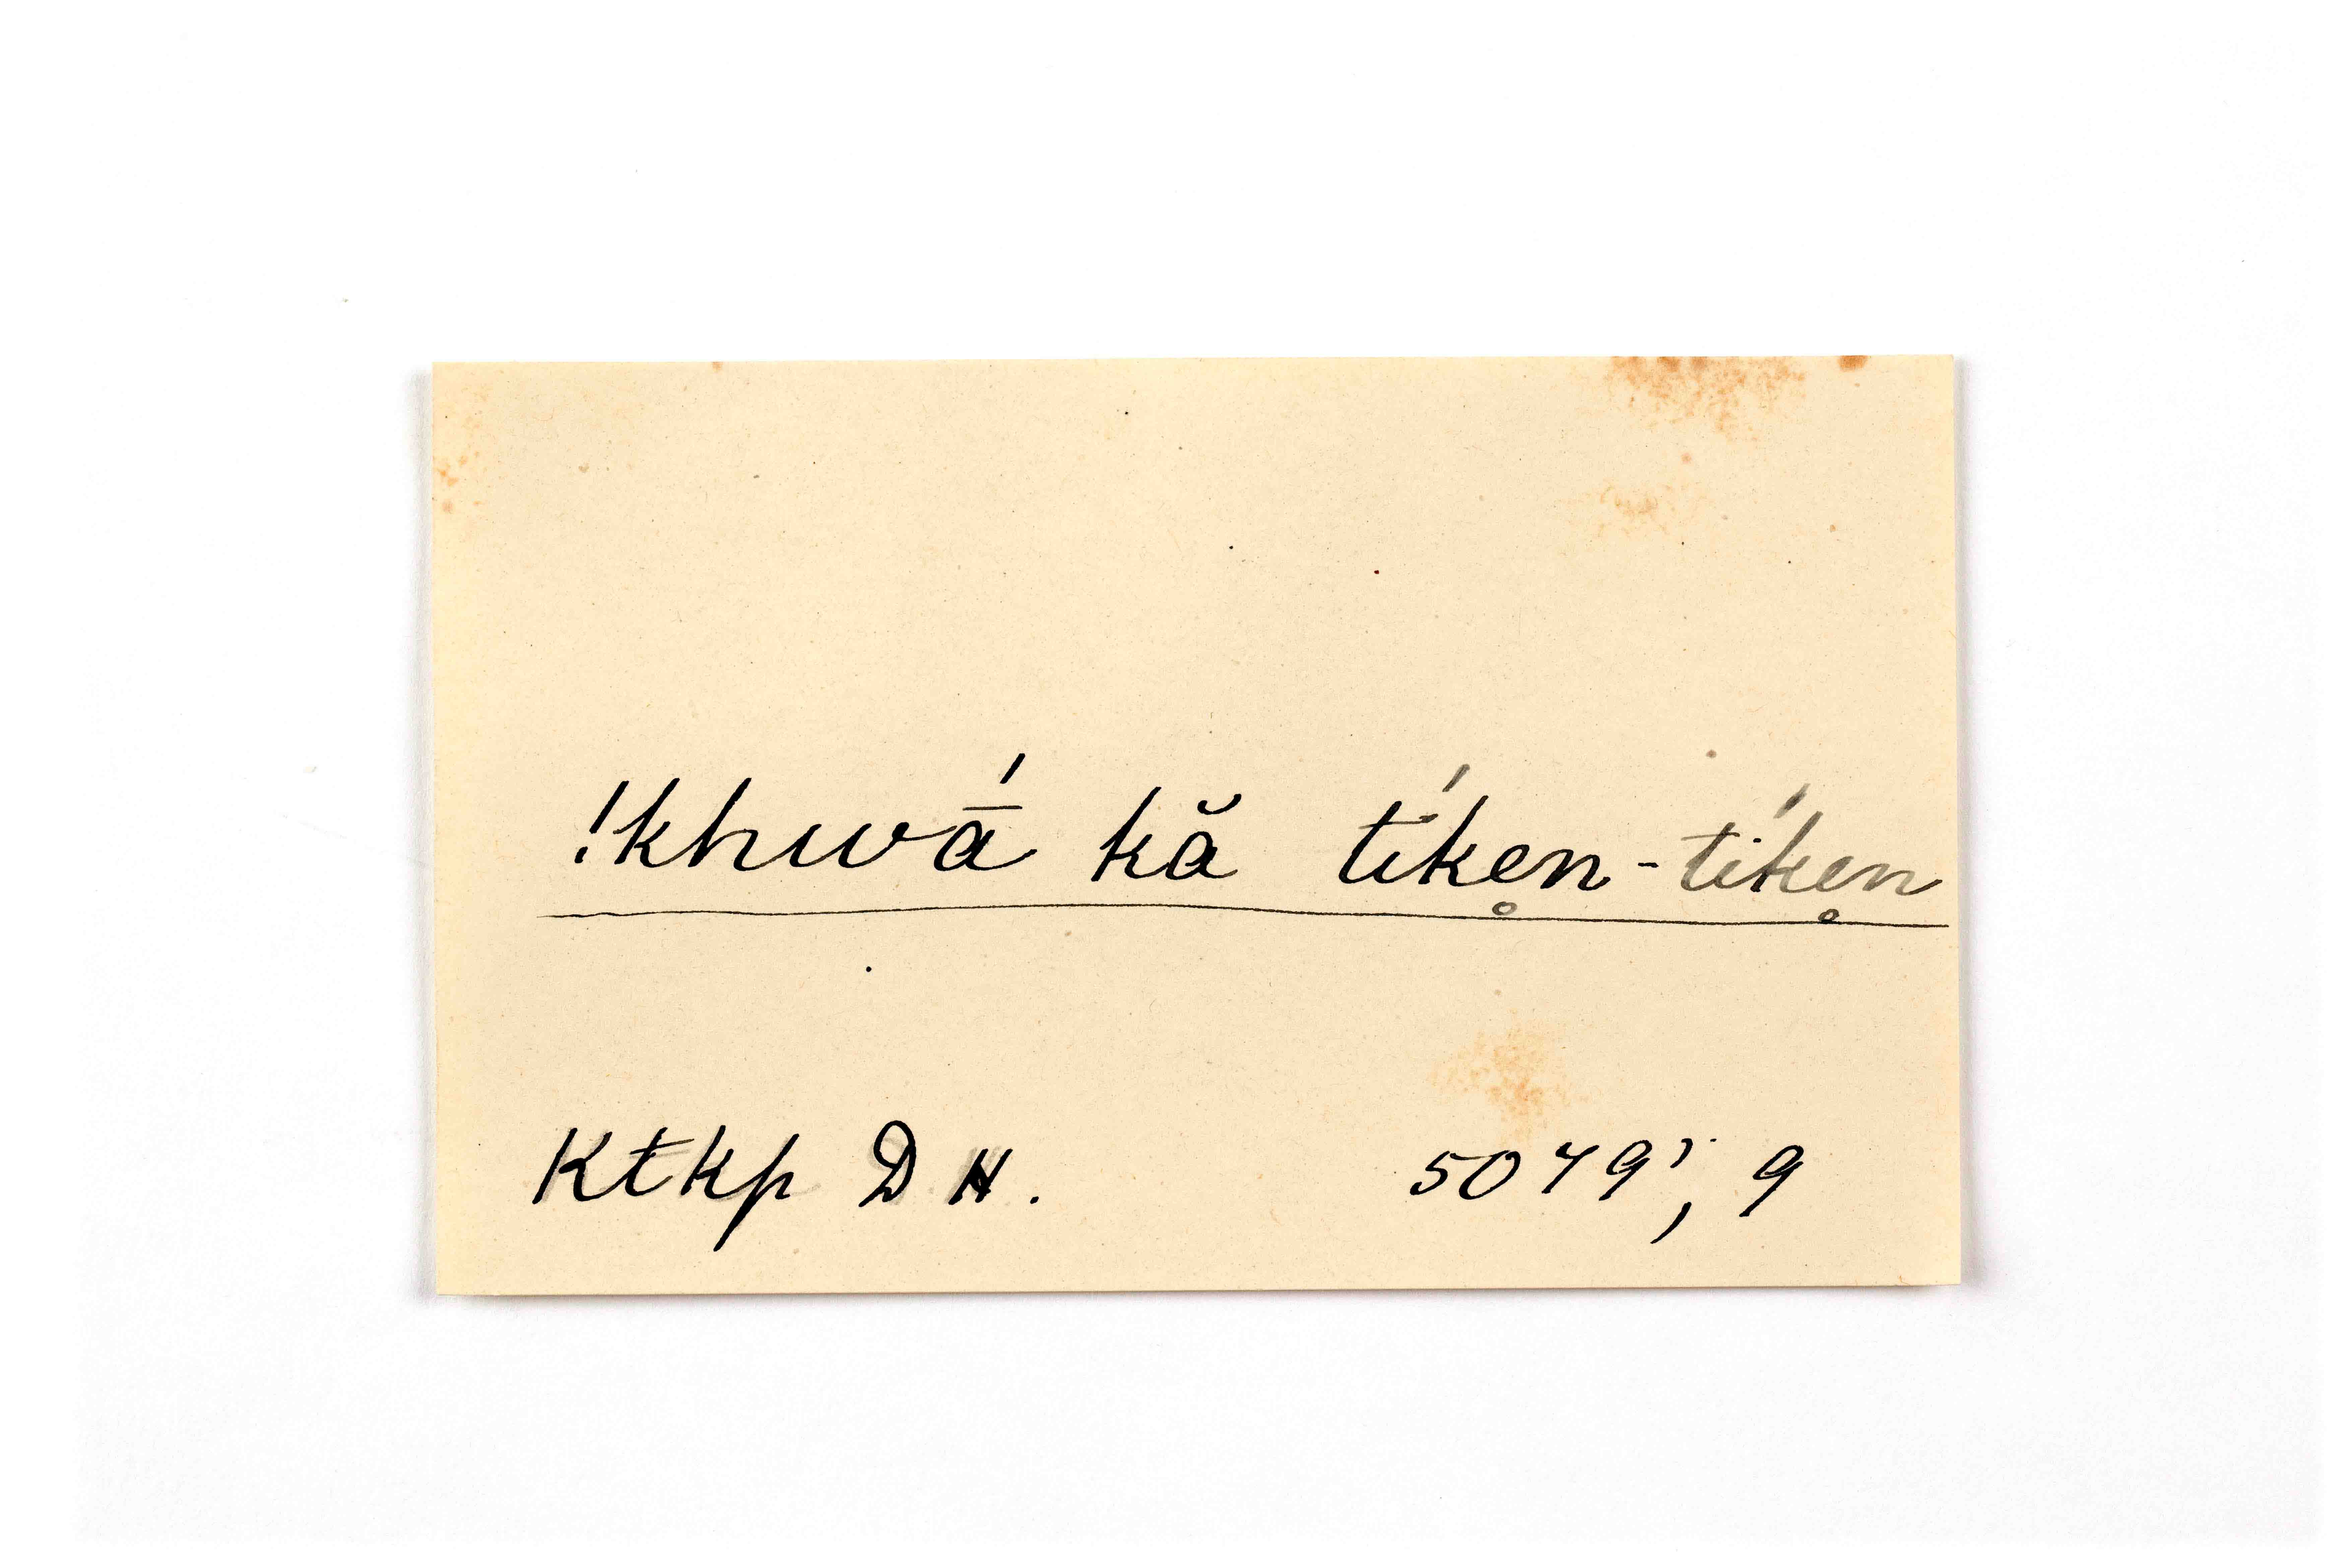 !khwā́ kă tíke̥n-tíke̥n
Ktkp D H. 5079', 9